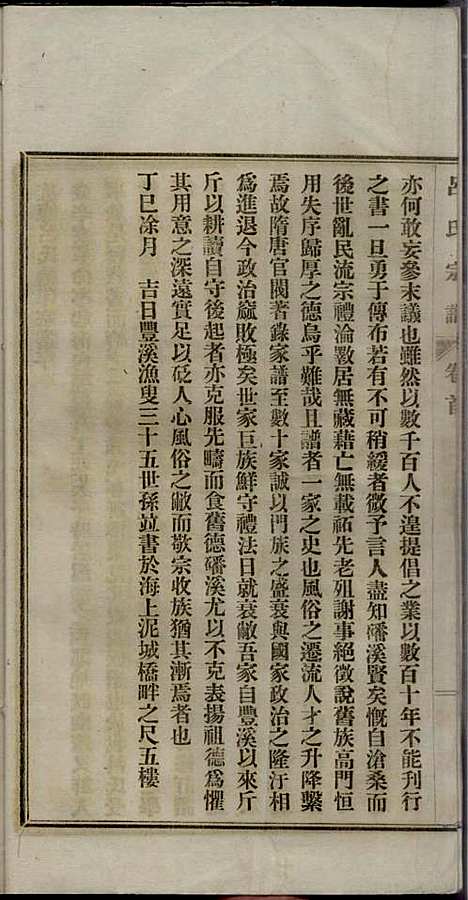 呂氏宗譜 卷首
亦何敢妄參末議也雖然以數千百人不遑提倡之業以數百十年不能刊行
之書一旦勇于傳布若有不可稍緩者微予言人盡知磻溪賢矣慨自滄桑而
後世亂民流宗禮淪斁居無藏藉亡無載祏先老殂謝事絕徵說舊族高門恒
用失序歸厚之德烏乎難哉且譜者一家之史也風俗之遷流人才之升降繫
焉故隋唐官閥著錄家譜至數十家誠以門族之盛衰與國家政治之隆汙相
爲進退今政治窳敗極矣世家巨族鮮守禮法日就衰敝吾家自豐溪以來斤
斤以耕讀自守後起者亦克服先疇而食舊德磻溪尤以不克表揚祖德爲懼
其用意之深遠實足以砭人心風俗之敝而敬宗收族猶其漸焉者也
丁巳涂月　吉日豐溪漁叟三十五世孫竝書於海上泥城橋畔之尺五樓